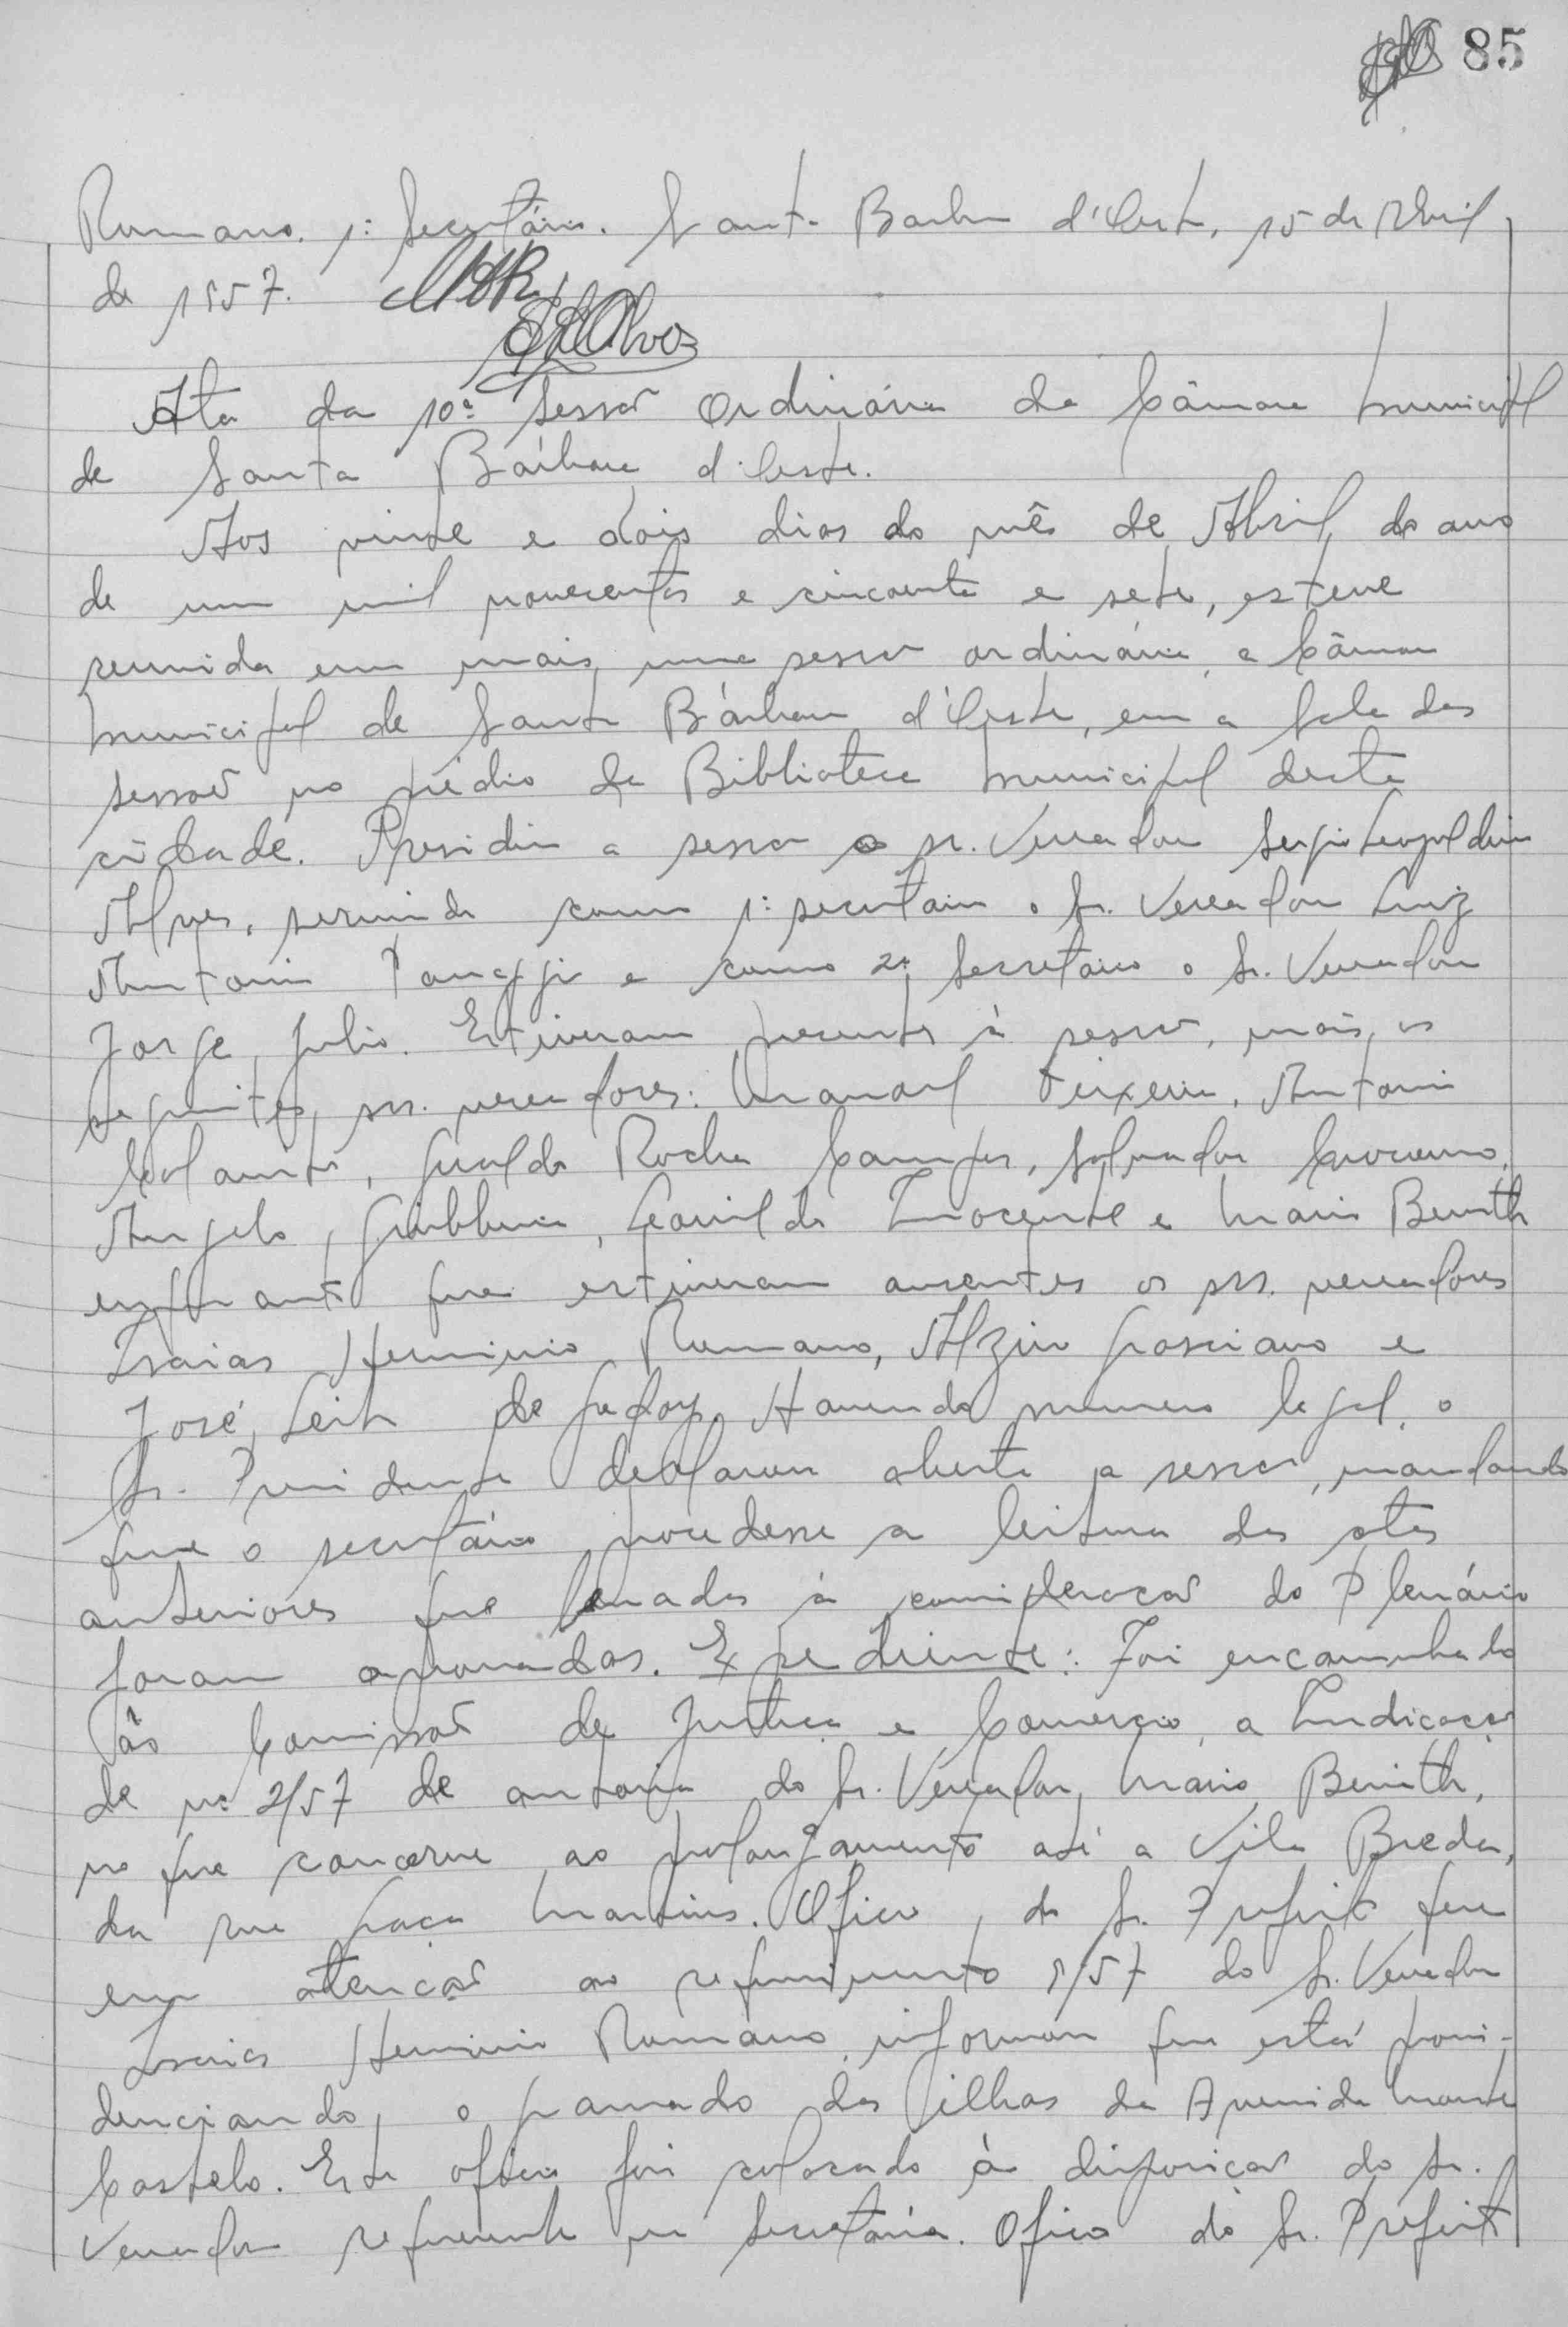 85
Romano. 1º Secretário. Santa Barbara d'Oeste, 15 de Abril
de 1957.
Ata da 10ª Sessão Ordinária da Câmara Municipal
de Santa Bárbara d'Oeste.
Aos vinte e dois dias do mês de Abril do ano
de um mil novecentos e cincoenta e sete, esteve
reunida em mais uma sessão ordinária, a Câmara
Municipal de Santa Bárbara d'Oeste, em a Sala das
sessões no prédio da Biblioteca Municipal desta
cidade. Presidiu a sessão o sr. Vereador Sergio Leopoldino
Alves, servindo como 1º secretario o Sr. Vereador Luiz
Antonio Panaggio e como 2º Secretario o Sr. Vereador
Jorge Julio. Estiveram presentes à sessão, mais, os
seguintes srs. vereadores: Manoel Teixeira, Antonio
Geraldo Rocha Campos, Salvador
Angelo Giubbina, Leonildo Inocente e Mario Benith
enquanto que estiveram ausentes os srs. vereadores
Isaias Herminio Romano, Alziro Gosciano e
José Leite de Godoy. Havendo numero legal, o
Sr. Presidente declarou aberta a sessão, mandando
que o secretário procedesse a leitura das atas
anteriores que levadas à consideração do Plenário
foram aprovadas. Expediente: Foi encaminhado
às Comissões de Justiça e Comercio, a Indicação
de nº 2/57 de autoria do Sr. Vereador Mario Benith,
no que concerne ao prolongamento até a Vila Breda,
da rua Graça Martins. Oficio, do Sr. Prefeito que
em atenção ao requerimento 1/57 do Sr. Vereador
Isaias Herminio Romano, informou que está provi-
denciando, o gramado das ilhas da Avenida Monte
Castelo. Este oficio foi colocado à disposição do Sr.
Vereador requerente na Secretária. Ofico do Sr. Prefeito